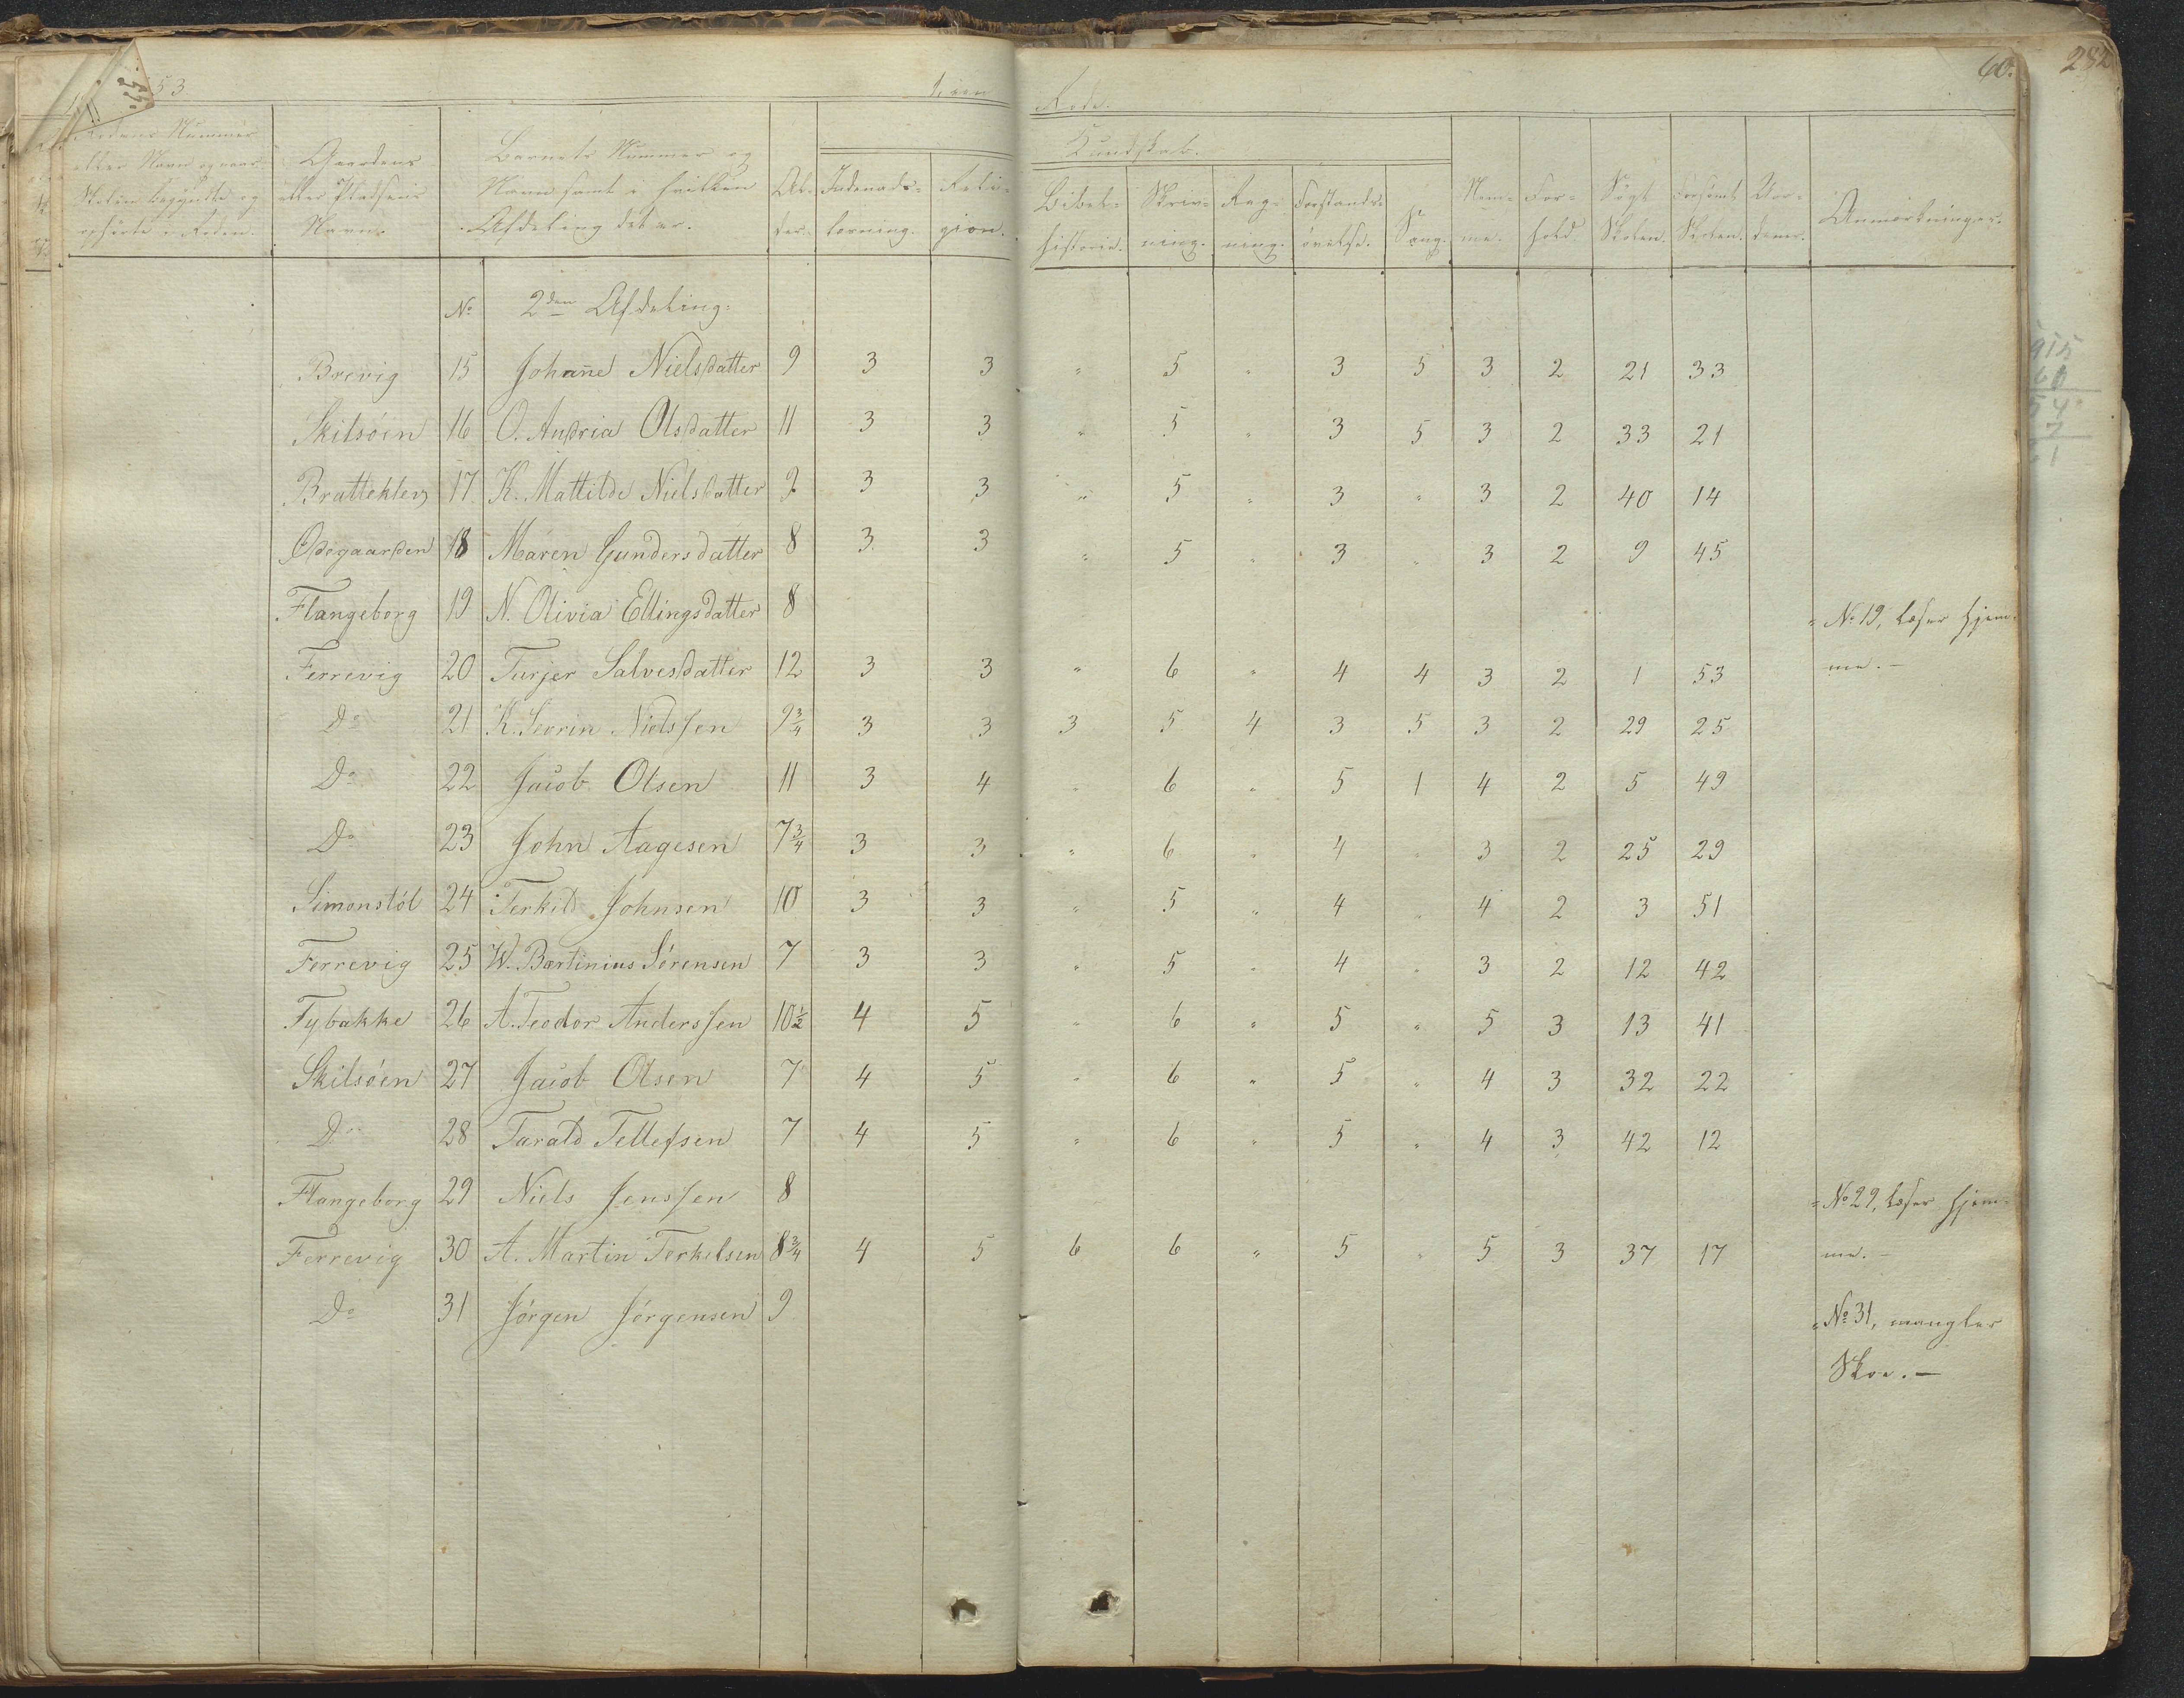 53.
1ste
Rode.
60.
282
Rodens Nummer
eller Navn og naar
Skolen begyndte og
ophørte i Roden.
Gaardens
eller Pladsens
Navn.
Barnets Nummer og
Navn samt i hvilken
Afdeling det er.
Al-
der.
Indenads-
læsning.
Reli-
gion.
Kundskab.
Bibel-
historie.
Skriv-
ning.
Reg-
ning.
Forstands-
øvelse.
Sang.
Nem-
me.
For-
hold
Søgt
Skolen.
Forsømt
Skolen.
Anmærkninger.
No 2den Afdeling:
Brevig 15 Johan̄e Nielsdatter 9 3 3 " 5 " 3 5 3 2 21 33
Skilsøen 16 O. Andria Olsdatter 11 3 3 " 5 " 3 5 3 2 33 21
Bratteklev 17 K. Mattilde Nielsdatter 9 3 3 " 5 " 3 " 3 2 40 14
Odegaarden 18 Maren Gundersdatter 8 3 3 " 5 " 3 " 3 2 9 45
Flangeborg 19 N. Olivia Ellingsdatter 8 " No 19, læser hjem-
Ferrevig 20 Turjer Salvesdatter 12 3 3 " 6 " 4 4 3 2 1 53 me. —
Do 21 K. Seorin Nielssen 9 3/4 3 3 3 5 4 3 5 3 2 29 25
Do 22 Jacob Olsen 11 3 4 " 6 " 5 1 4 2 5 49
Do 23 John Aagesen 7 3/4 3 3 " 6 " 4 " 3 2 25 29
Simonstøl 24 Terkild Johnsen 10 3 3 " 5 " 4 " 4 2 3 51
Ferrevig 25 W. Bærtinius Sørensen 7 3 3 " 5 " 4 " 3 2 12 42
Fybakke 26 A. Teodor Anderssen 10 1/2 4 5 " 6 " 5 " 5 3 13 41
Skilsøen 27 Jacob Olsen 7 4 5 " 6 " 5 " 4 3 32 22
Do 28 Tarald Tellefsen 7 4 5 " 6 " 5 " 4 3 42 12
Flangeborg 29 Niels Jenssen 8 " No 29, læser hjem-
Ferrevig 30 A. Martin Terkelsen 8 3/4 4 5 6 6 " 5 " 5 3 37 17 me. —
Do 31 Jørgen Jørgensen 9 " No 31, mangler
Skoe. —